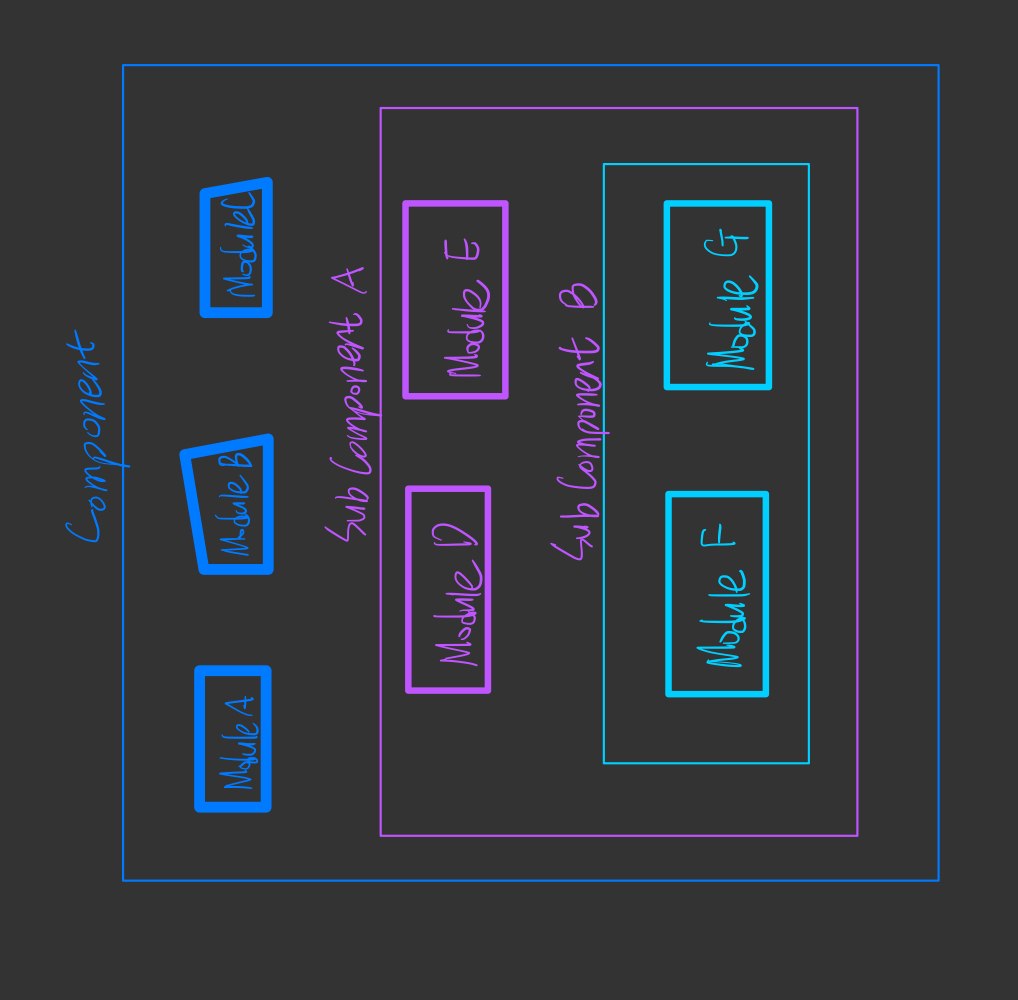 Component
Module A
Module B
Module C
Sub Component A
Module D
Module E
Sub Component B
Module F
Module G